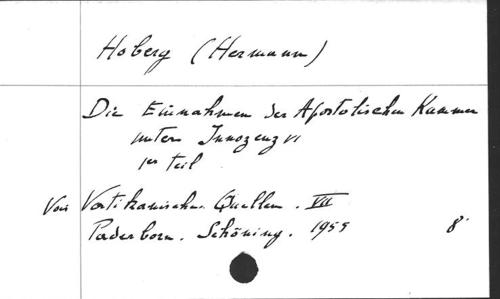 Hoberg (Hermann)
Die Einnahmen der Apostolischen Kammer
unter Innozenz VI
1er Teil
Voir Vatikanische. Quellen. VII
Paderborn. Schöning. 1955 8°